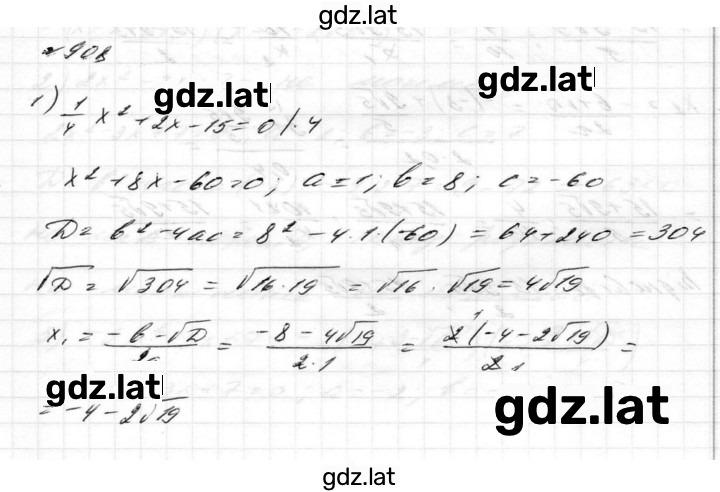 gdz.lat
№ 908
gdz.lat gdz.lat
1) 1/4 x² + 2x - 15 = 0 | · 4
x² + 8x - 60 = 0; a = 1; b = 8; c = -60
D = b² - 4ac = 8² - 4 · 1 · (-60) = 64 + 240 = 304
√D = √304 = √16·19 = √16 · √19 = 4√19
x₁ = (-b - √D)/2a = (-8 - 4√19)/(2·1) = 2(-4 - 2√19)/(2·1) =
gdz.lat gdz.lat
= -4 - 2√19
gdz.lat